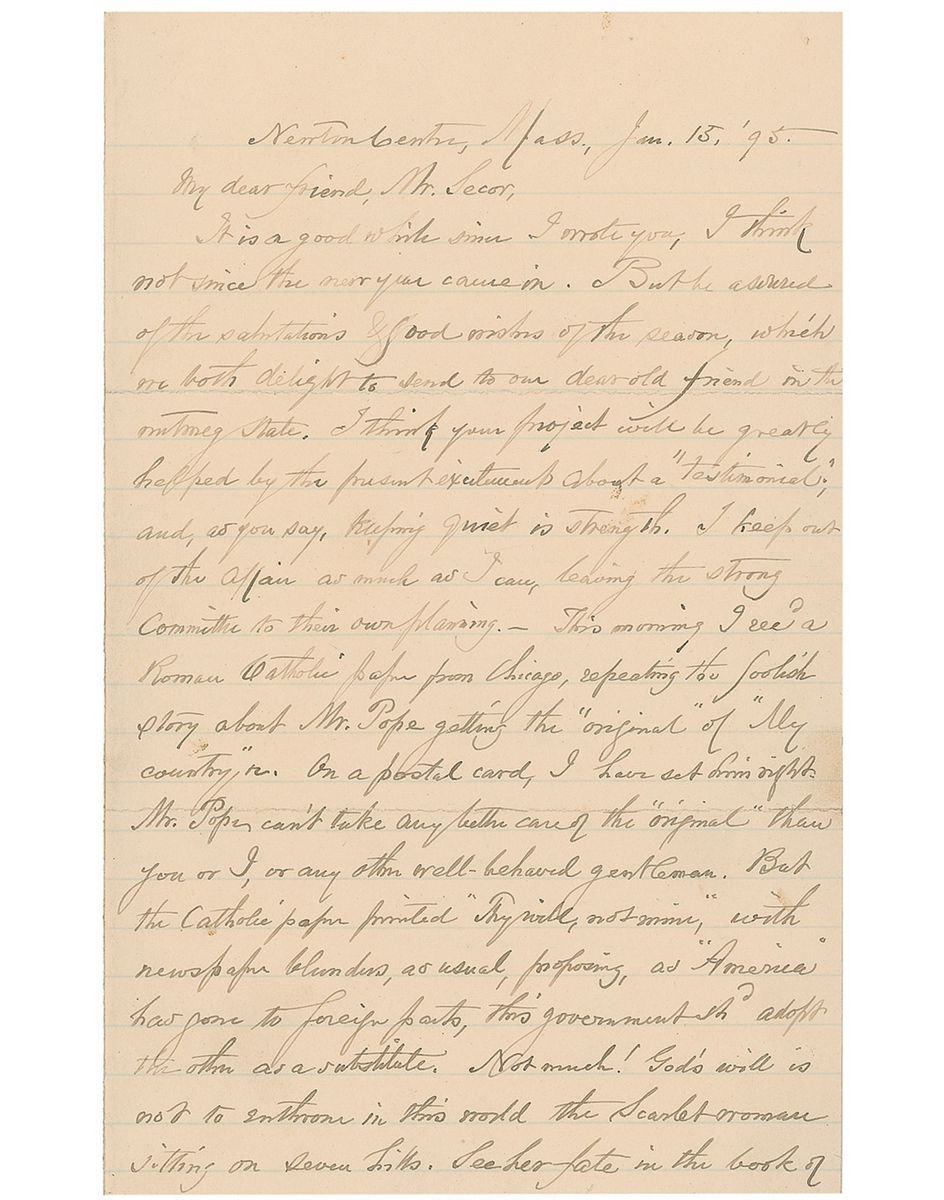 Newton Centre, Mass., Jan. 15, '95.
My dear friend, Mr. Secor,
It is a good while since I wrote you, I think
not since the new year came in. But be assured
of the salutations & good wishes of the season, which
we both delight to send to our dear old friend in the
nutmeg state. I think your project will be greatly
helped by the present excitement about a "testimonial";
and, as you say, keeping quiet is strength. I keep out
of the affair as much as I can, leaving the strong
Committee to their own planning. — This morning I rec'd a
Roman Catholic paper from Chicago, repeating the foolish
story about Mr. Pope getting the "original" of "My
country," &c. On a postal card, I have set him right.
Mr. Pope can't take any better care of the "original" than
you or I, or any other well-behaved gentleman. But
the Catholic paper printed "Thy will, not mine," with
newspaper blunders, as usual, proposing, as "America"
has gone to foreign parts, this government sh'd adopt
the other as a substitute. Not much! God's will is
not to enthrone in this world the Scarlet woman
sitting on seven hills. See her fate in the book of